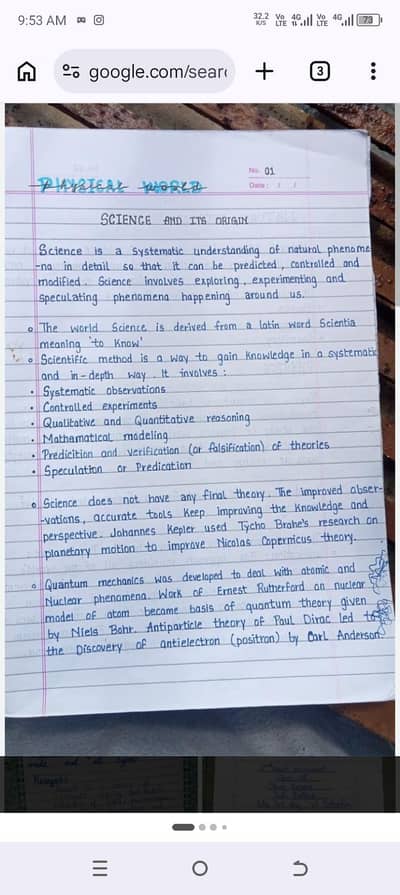 9:53 AM
32.2 K/S Vo LTE 4G Vo LTE 4G 73
google.com/sear
3
No. 01
Date : / /
PHYSICAL WORLD
SCIENCE AND ITS ORIGIN
Science is a systematic understanding of natural phenome
-na in detail so that it can be predicted, controlled and
modified. Science involves exploring, experimenting and
speculating phenomena happening around us.
The world Science is derived from a latin word Scientia
meaning 'to Know'
Scientific method is a way to gain knowledge in a systematic
and in-depth way. It involves :
• Systematic observations
• Controlled experiments
• Qualitative and Quantitative reasoning
• Mathamatical modeling
• Predicition and verification (or falsification) of theories
• Speculation or Predication
Science does not have any final theory. The improved obser-
-vations, accurate tools keep improving the knowledge and
perspective. Johannes Kepler used Tycho Brahe's research on
planetary motion to improve Nicolas Copernicus theory.
Quantum mechanics was developed to deal with atomic and
Nuclear phenomena. Work of Ernest Rutherford on nuclear
model of atom became basis of quantum theory given
by Niels Bohr. Antiparticle theory of Paul Dirac led to
the Discovery of antielectron (positron) by Carl Anderson